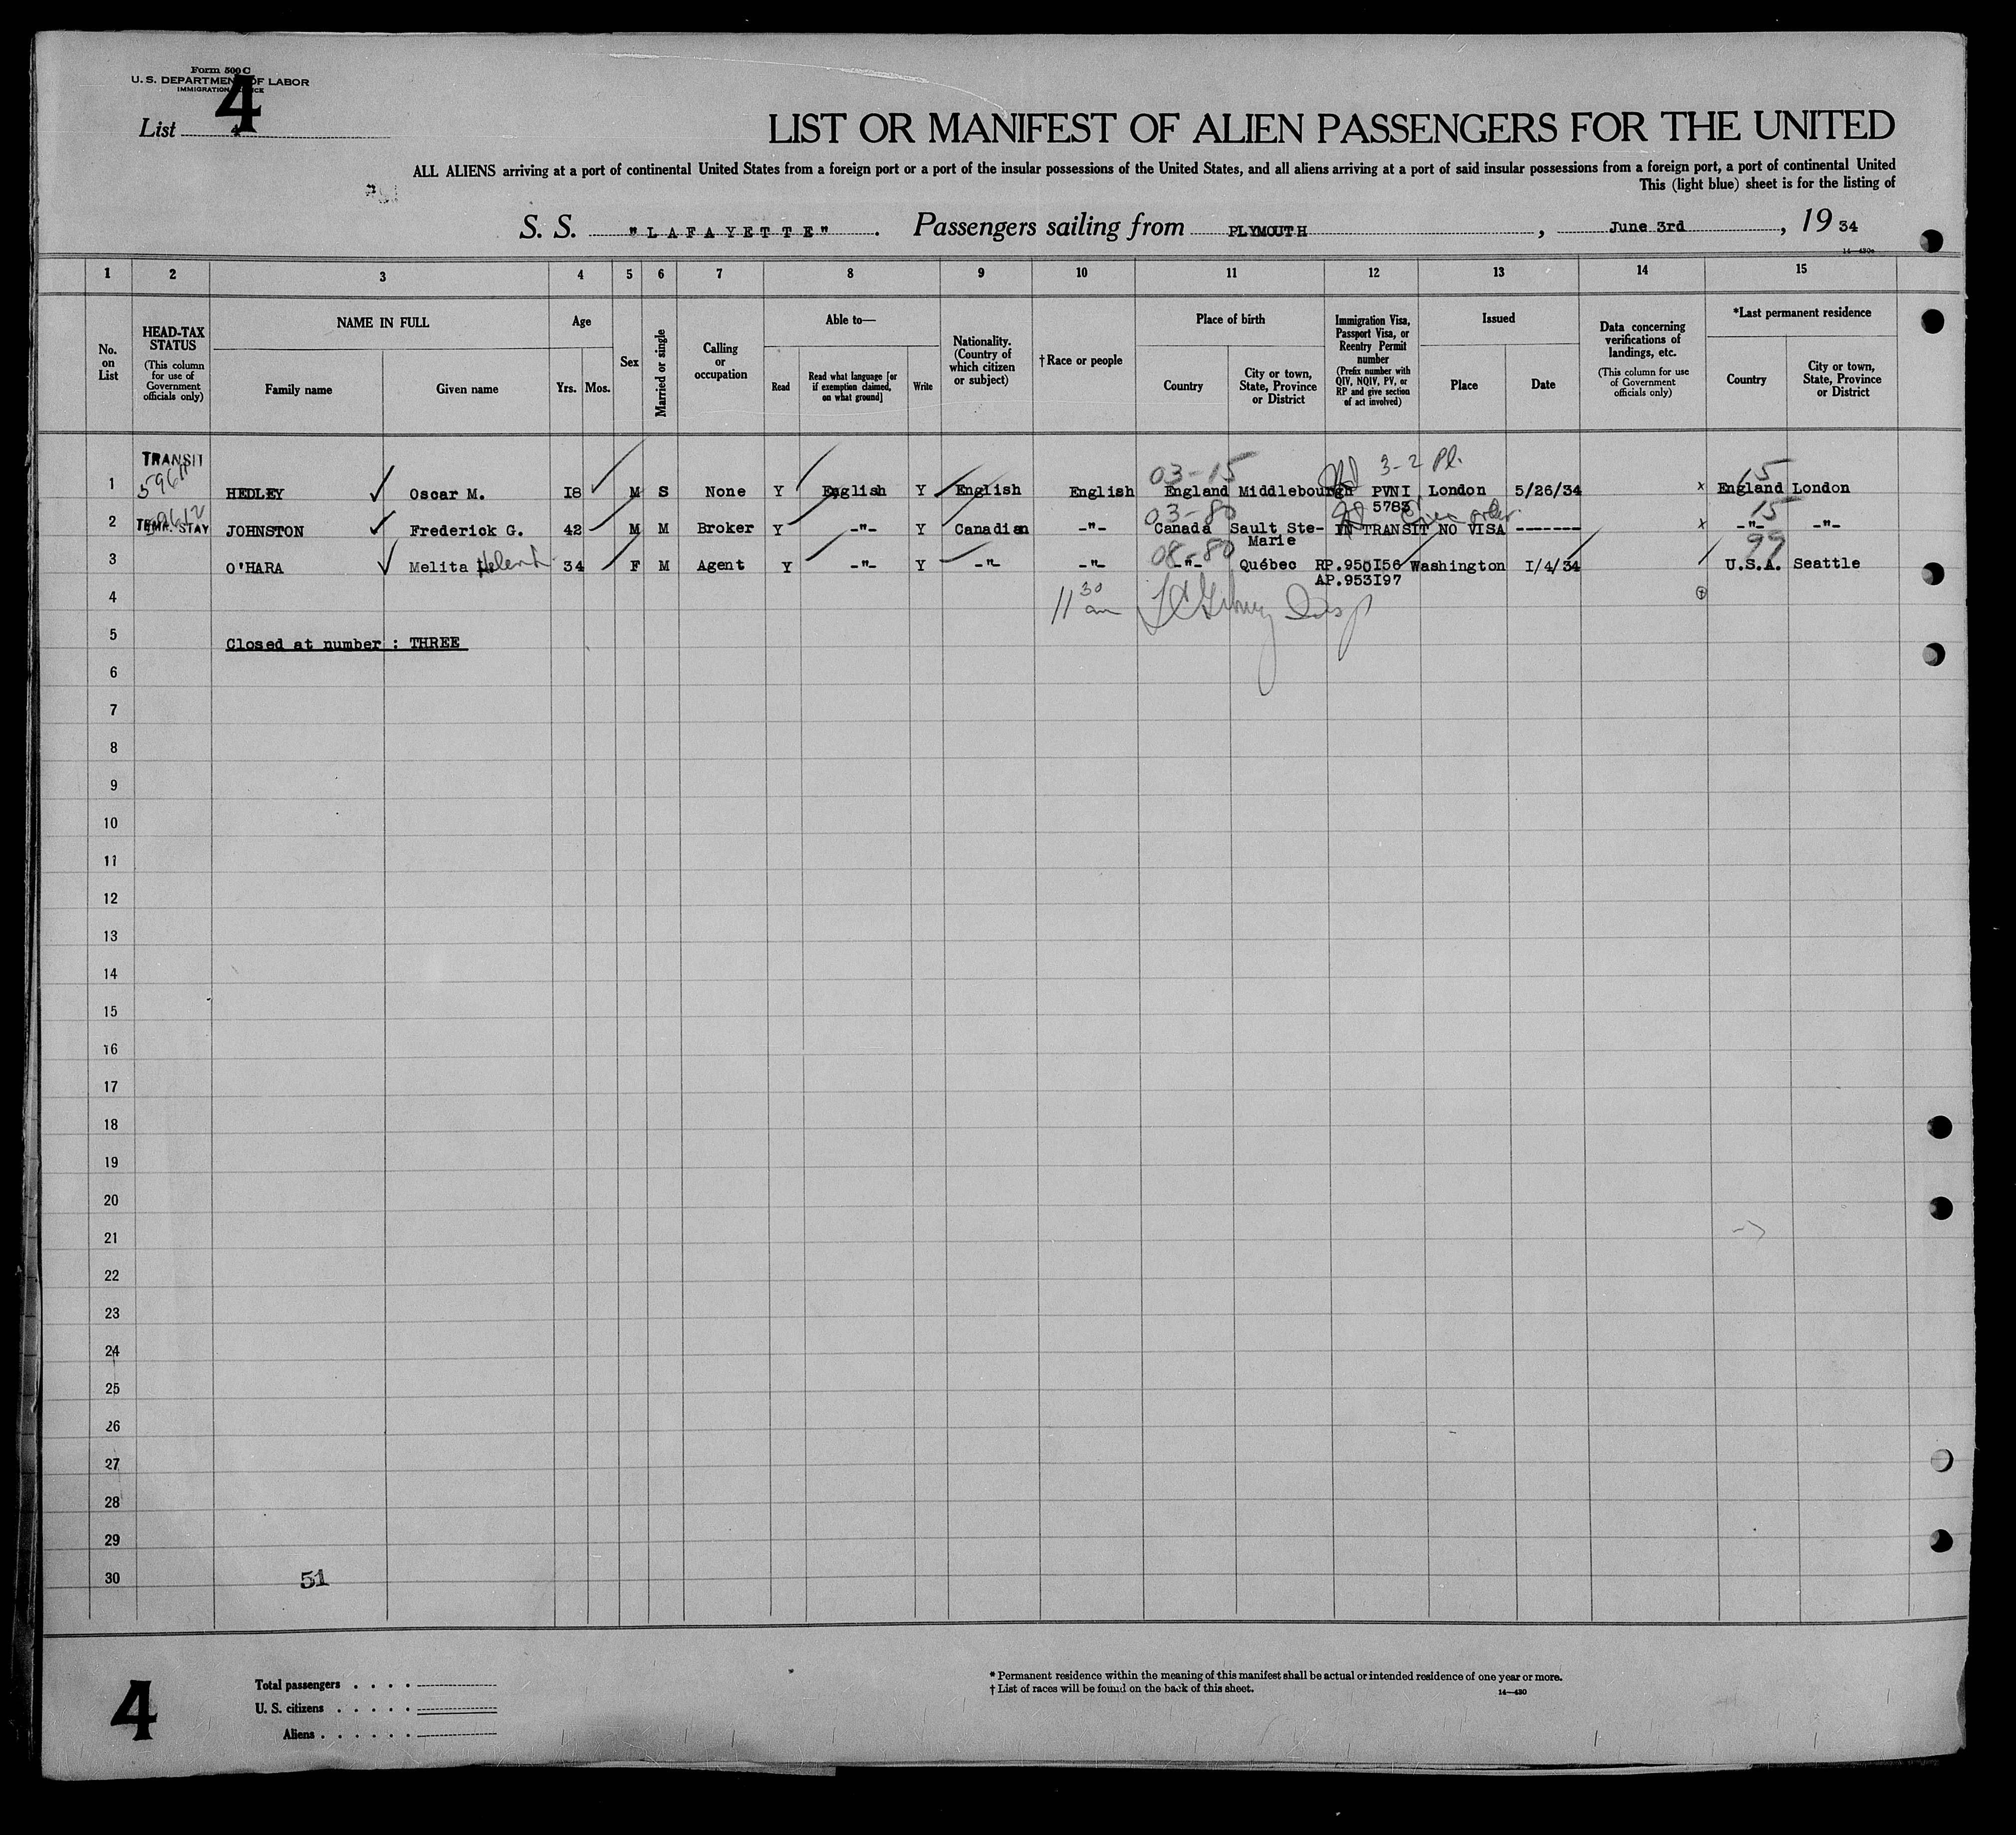 Form 500 C
U. S. DEPARTMENT OF LABOR
IMMIGRATION SERVICE
4
List 4
LIST OR MANIFEST OF ALIEN PASSENGERS FOR THE UNITED
ALL ALIENS arriving at a port of continental United States from a foreign port or a port of the insular possessions of the United States, and all aliens arriving at a port of said insular possessions from a foreign port, a port of continental United
This (light blue) sheet is for the listing of
S. S. "LAFAYETTE". Passengers sailing from PLYMOUTH, June 3rd, 19 34
14—430a
1 2 3 4 5 6 7 8 9 10 11 12 13 14 15
No. on List
HEAD-TAX STATUS (This column for use of Government officials only)
NAME IN FULL
Family name Given name
Age
Yrs. Mos.
Sex
Married or single
Calling or occupation
Able to—
Read Read what language [or if exemption claimed, on what ground] Write
Nationality. (Country of which citizen or subject)
†Race or people
Place of birth
Country City or town, State, Province or District
Immigration Visa, Passport Visa, or Reentry Permit number (Prefix number with QIV, NQIV, PV, or RP and give section of act involved)
Issued
Place Date
Data concerning verifications of landings, etc. (This column for use of Government officials only)
*Last permanent residence
Country City or town, State, Province or District
TRANSIT 03-15 3-2 Pl. 15
59611
1 HEDLEY Oscar M. 18 M S None Y English Y English English England Middlebourgh PVNI London 5/26/34 x England London
5783
59612 03-80 15
2 TEMP. STAY JOHNSTON Frederick G. 42 M M Broker Y -"- Y Canadian -"- Canada Sault Ste-Marie IN TRANSIT NO VISA ------- x -"- -"-
08-80 99
3 O'HARA Melita Helen 34 F M Agent Y -"- Y -"- -"- -"- Québec RP.950156 Washington 1/4/34 U.S.A. Seattle
AP.953197
4 11 30 am Insp
5 Closed at number : THREE
6
7
8
9
10
11
12
13
14
15
16
17
18
19
20
21
22
23
24
25
26
27
28
29
30 51
4
Total passengers . . . .
U. S. citizens . . . . .
Aliens . . . . . .
* Permanent residence within the meaning of this manifest shall be actual or intended residence of one year or more.
† List of races will be found on the back of this sheet.
14—430